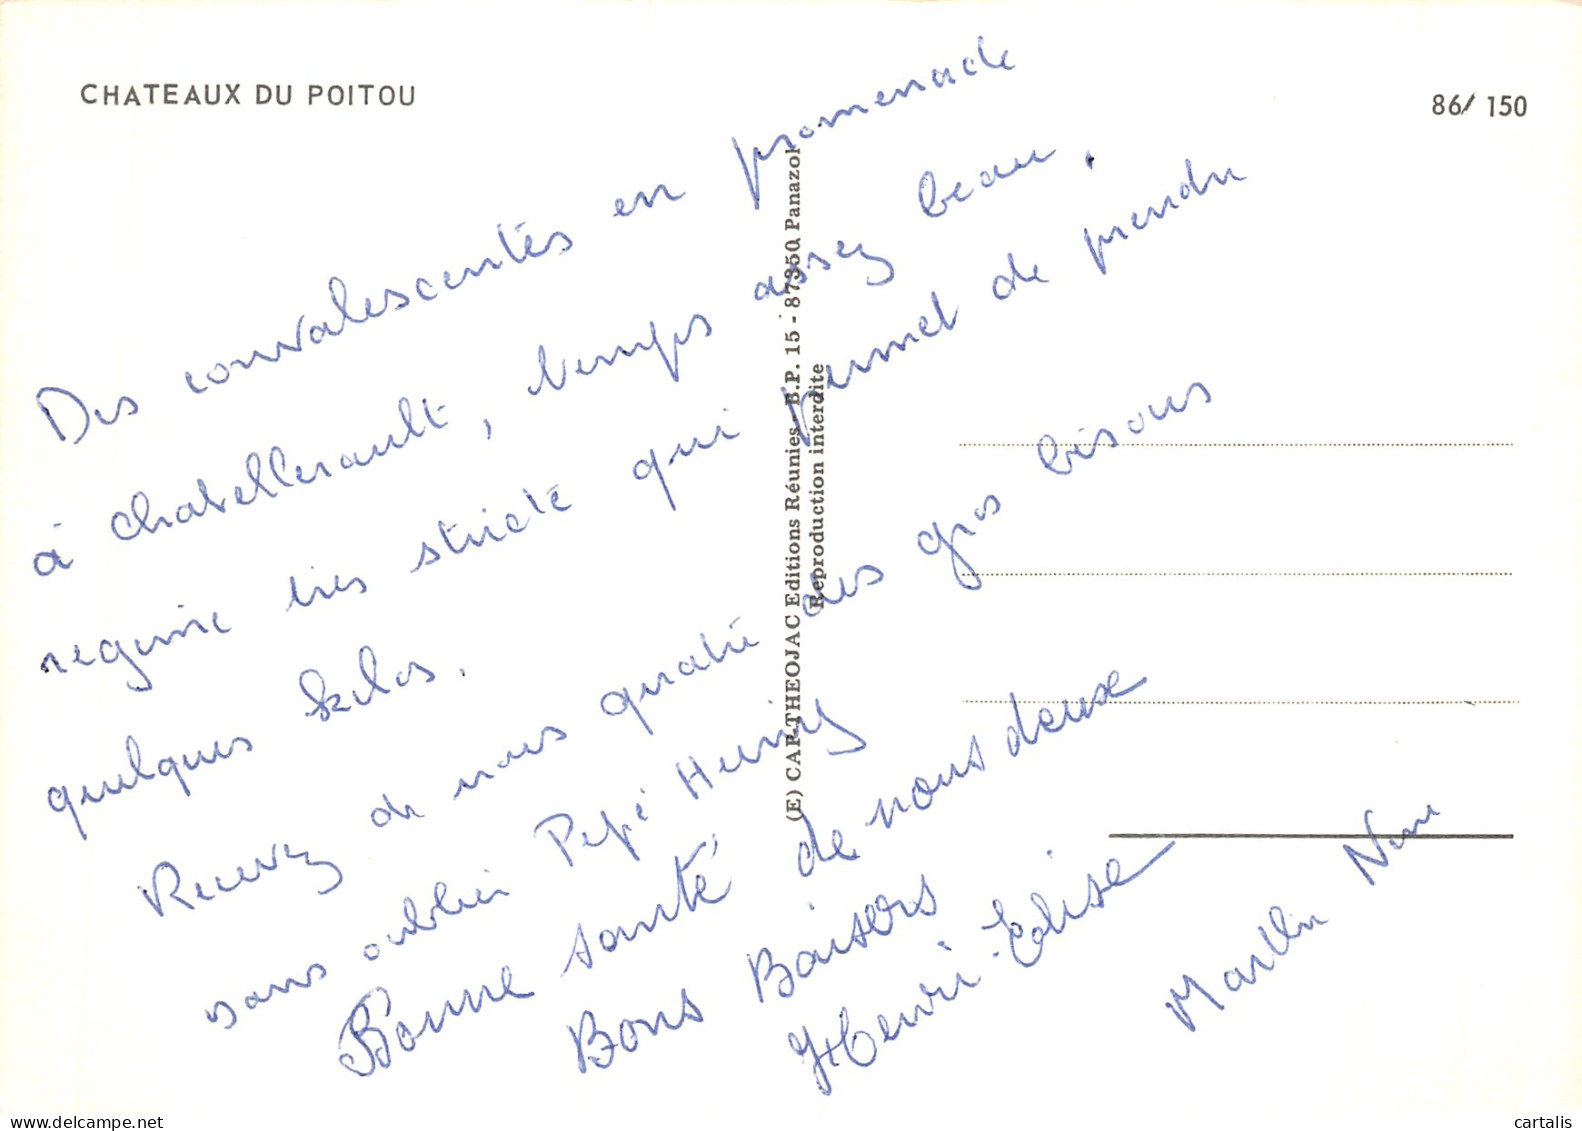 CHATEAUX DU POITOU
86/ 150
Des convalescentés en promenade
à chatellerault, temps assez beau,
regime tres stricte qui permet de prendre
quelques kilos.
Recevez de nous quatre des gros bisous
sans oublier Pepé Henry
Bonne santé de nous deuse
Bons Baisers
Henri-Elise
(E) CAP-THEOJAC Editions Réunies - B.P. 15 - 87350 Panazol
Reproduction interdite
delcampe.net
cartalis